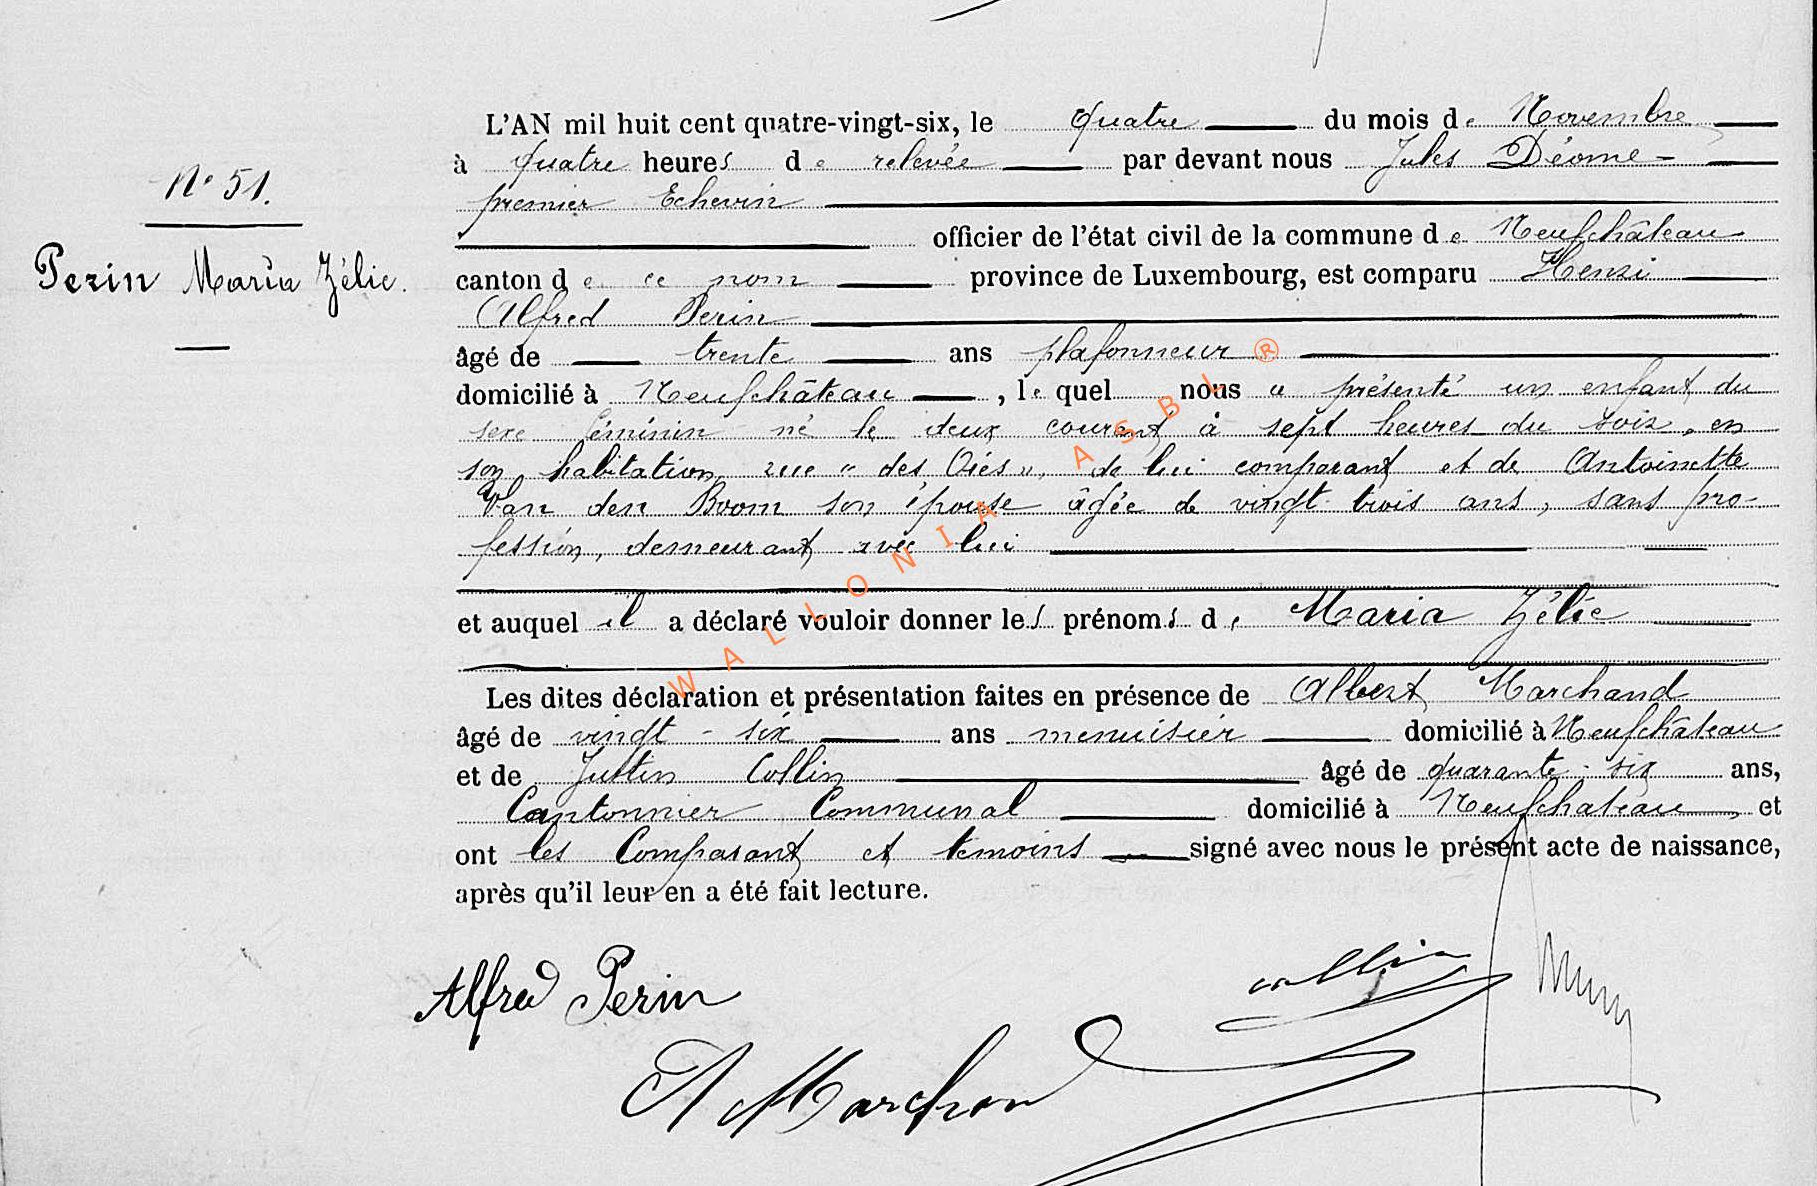 L'AN mil huit cent quatre-vingt-six, le quatre du mois de Novembre
à quatre heures de relevée par devant nous Jules Déome
N° 51.
premier Echevin
officier de l'état civil de la commune de Neufchâteau
Perin Maria Zélie.
canton de ce nom province de Luxembourg, est comparu Henri
Alfred Perin
âgé de trente ans plafonneur ®
domicilié à Neufchâteau, lequel nous a présenté un enfant du
sexe féminin né le deux courant à sept heures du soir, en
son habitation rue " des Oies ", de lui comparant et de Antoinette
Van den Boom son épouse âgée de vingt trois ans, sans pro-
fession, demeurant avec lui
WALLONIA ASBL
et auquel il a déclaré vouloir donner les prénoms de Maria Zélie
Les dites déclaration et présentation faites en présence de Albert Marchand
âgé de vingt-six ans menuisier domicilié à Neufchâteau
et de Justin Collin âgé de quarante-six ans,
Cantonnier Communal domicilié à Neufchateau, et
ont les Comparant et temoins signé avec nous le présent acte de naissance,
après qu'il leur en a été fait lecture.
Alfred Perin
collin
A Marchand